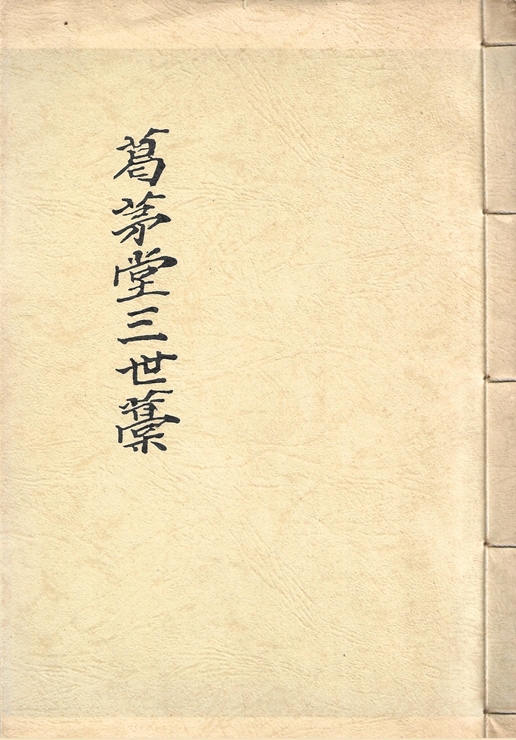 葛茅堂三世藁